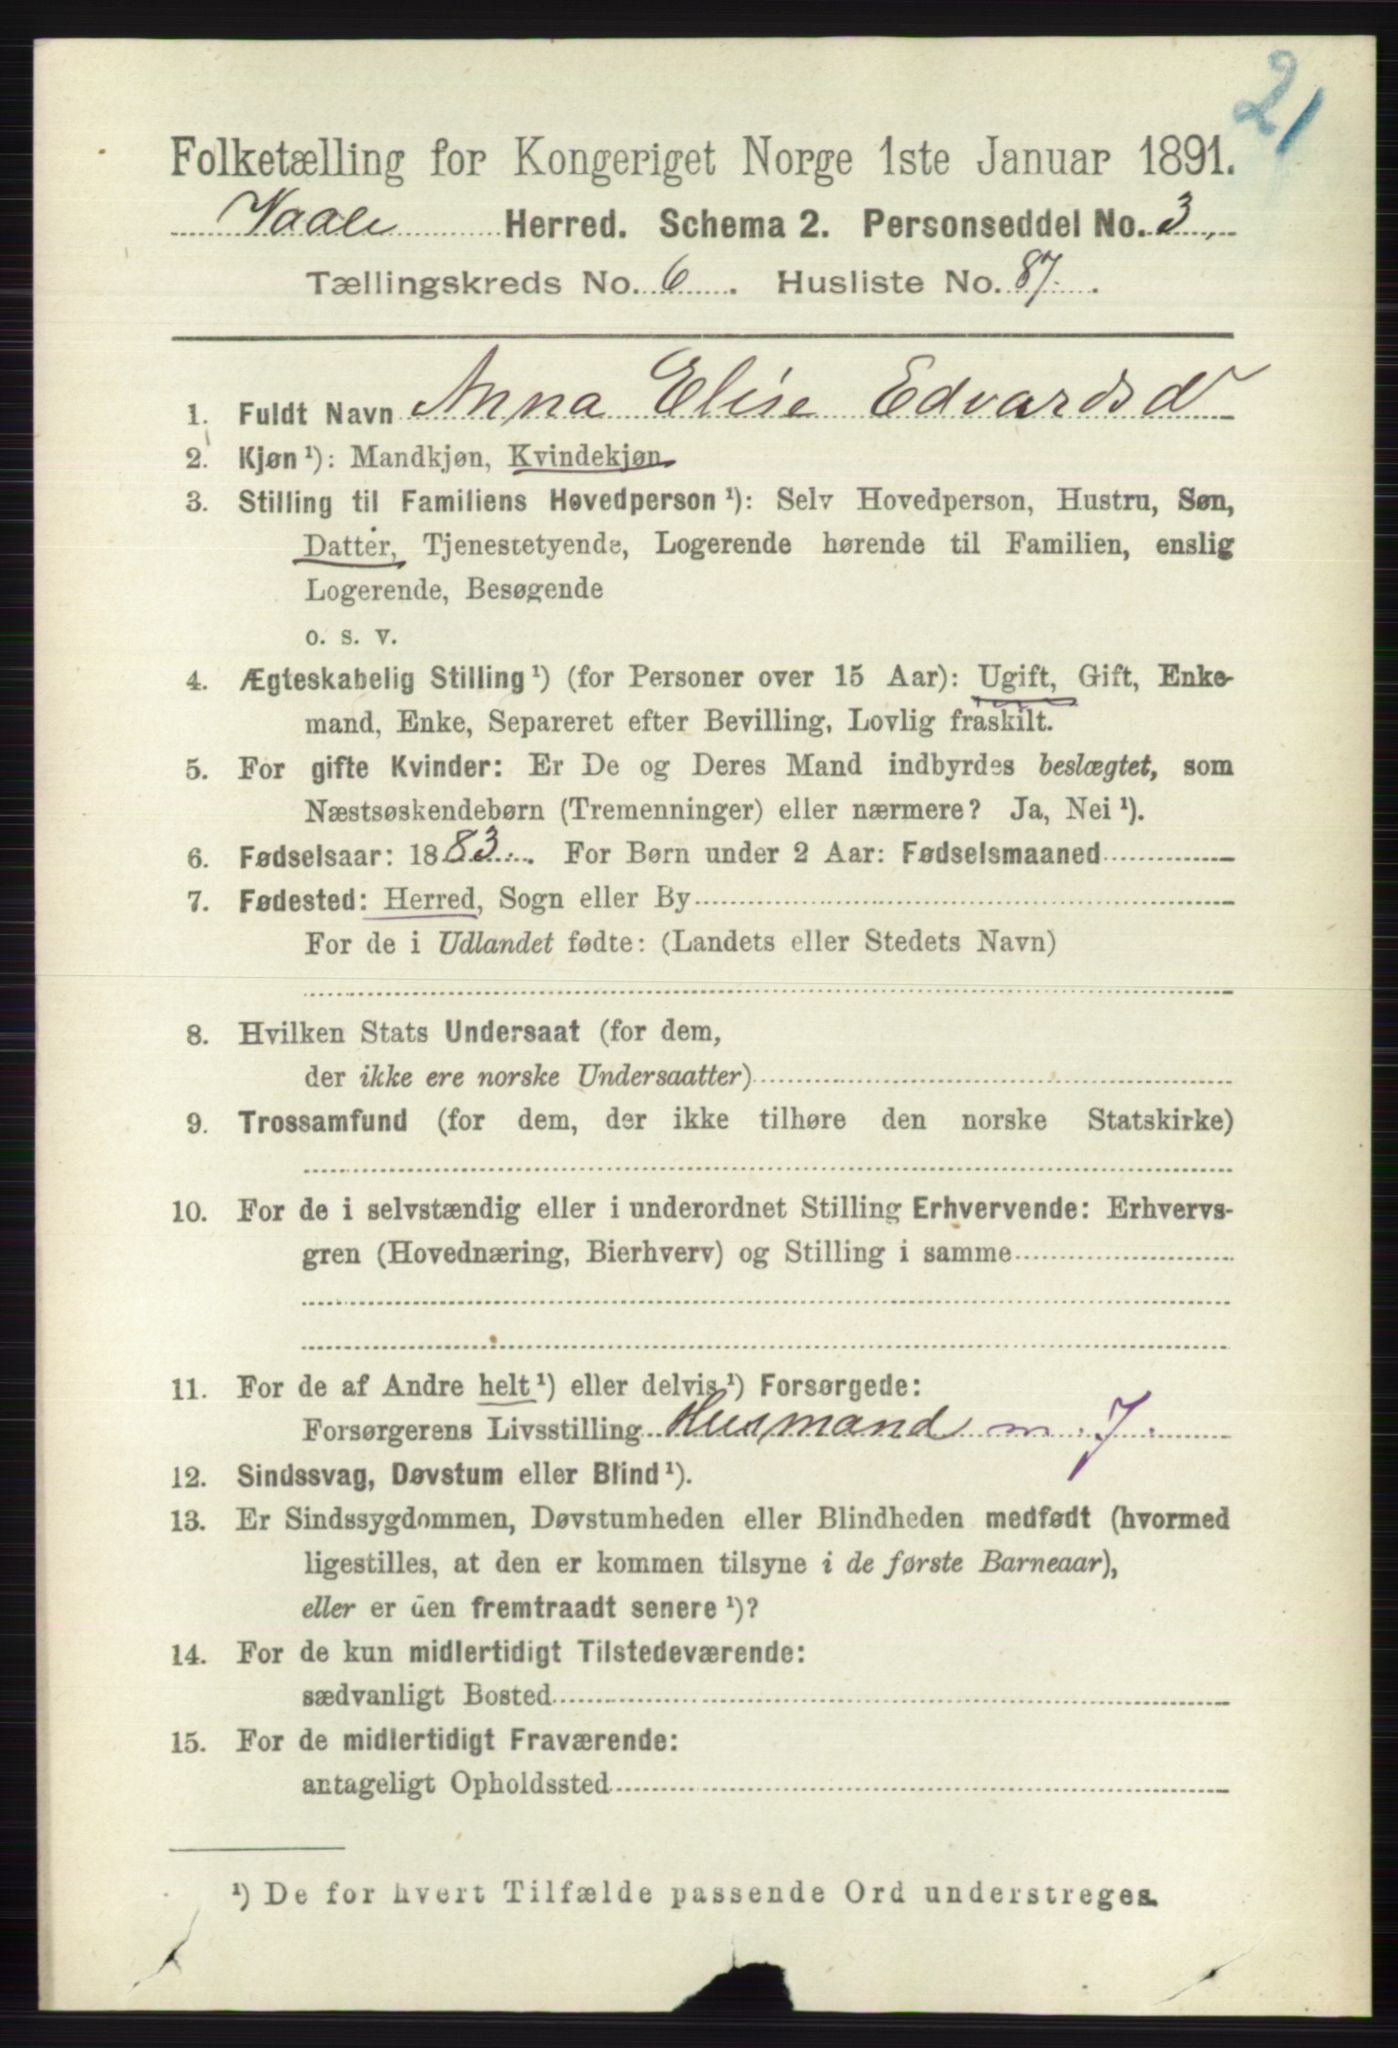 21
Folketælling for Kongeriget Norge 1ste Januar 1891.
Vaale Herred. Schema 2. Personseddel No. 3
Tællingskreds No. 6. Husliste No. 87.
1. Fuldt Navn Anna Elise Edvardsd
2. Kjøn ¹): Mandkjøn, Kvindekjøn
3. Stilling til Familiens Hovedperson ¹): Selv Hovedperson, Hustru, Søn,
Datter, Tjenestetyende, Logerende hørende til Familien, enslig
Logerende, Besøgende
o. s. v.
4. Ægteskabelig Stilling ¹) (for Personer over 15 Aar): Ugift, Gift, Enke-
mand, Enke, Separeret efter Bevilling, Lovlig fraskilt.
5. For gifte Kvinder: Er De og Deres Mand indbyrdes beslægtet, som
Næstsøskendebørn (Tremenninger) eller nærmere? Ja, Nei ¹).
6. Fødselsaar: 1883. For Børn under 2 Aar: Fødselsmaaned
7. Fødested: Herred, Sogn eller By
For de i Udlandet fødte: (Landets eller Stedets Navn)
8. Hvilken Stats Undersaat (for dem,
der ikke ere norske Undersaatter)
9. Trossamfund (for dem, der ikke tilhøre den norske Statskirke)
10. For de i selvstændig eller i underordnet Stilling Erhvervende: Erhvervs-
gren (Hovednæring, Bierhverv) og Stilling i samme
11. For de af Andre helt ¹) eller delvis ¹) Forsørgede:
Forsørgerens Livsstilling Husmand m. J.
12. Sindssvag, Døvstum eller Blind ¹).
13. Er Sindssygdommen, Døvstumheden eller Blindheden medfødt (hvormed
ligestilles, at den er kommen tilsyne i de første Barneaar),
eller er den fremtraadt senere ¹)?
14. For de kun midlertidigt Tilstedeværende:
sædvanligt Bosted
15. For de midlertidigt Fraværende:
antageligt Opholdssted
¹) De for hvert Tilfælde passende Ord understreges.